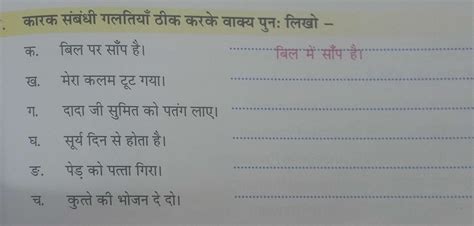 कारक संबंधी गलतियाँ ठीक करके वाक्य पुनः लिखो –
क. बिल पर साँप है। बिल में साँप है।
ख. मेरा कलम टूट गया।
ग. दादा जी सुमित को पतंग लाए।
घ. सूर्य दिन से होता है।
ङ. पेड़ को पत्ता गिरा।
च. कुत्ते की भोजन दे दो।